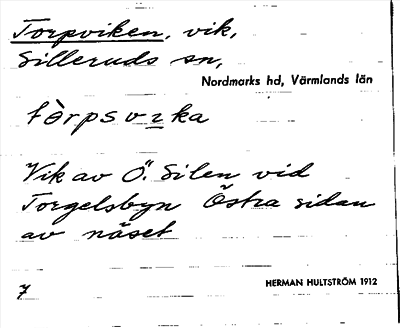 Torpviken, vik,
Silleruds sn,
Nordmarks hd, Värmlands län
tòrpsvɩka
Vik av Ö. Silen vid
Torgelsbyn Östra sidan
av näset
7
HERMAN HULTSTRÖM 1912